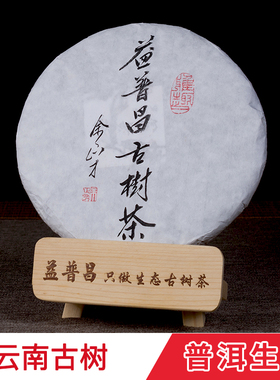 益普昌古樹茶
益普昌 只做生态古树茶
云南古树
普洱生